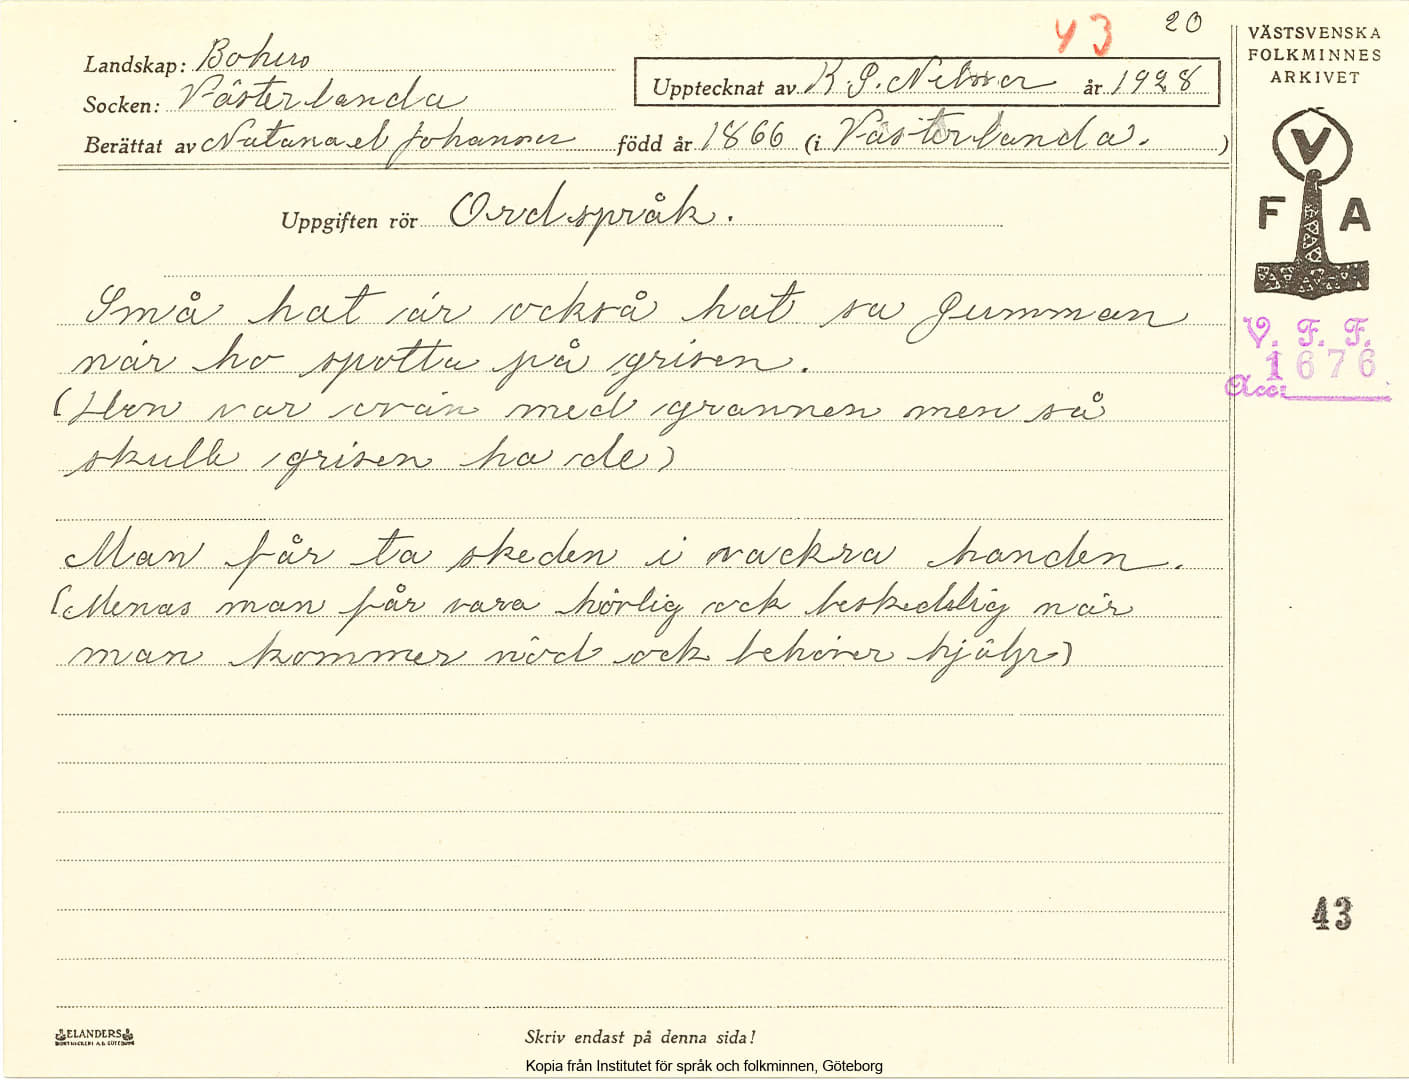 43 20
VÄSTSVENSKA
FOLKMINNES
ARKIVET
Landskap: Bohus
Upptecknat av K G. Nilsson år 1928
Socken: Västerlanda
Berättat av Natanael Johansson född år 1866 (i Västerlanda. )
V
F A
Uppgiften rör Ordspråk.
V. F. F.
1676
Acc:
Små hat är också hat sa gumman
när ho spotta på grisen.
(Hon var ovän med grannen men så
skulle grisen ha de)
Man får ta skeden i vackra handen.
(Menas man får vara hövlig ock beskedelig när
man kommer nöd ock behöver hjälp)
43
ELANDERS
BOKTRYCKERI A.B. GÖTEBORG
Skriv endast på denna sida!
Kopia från Institutet för språk och folkminnen, Göteborg